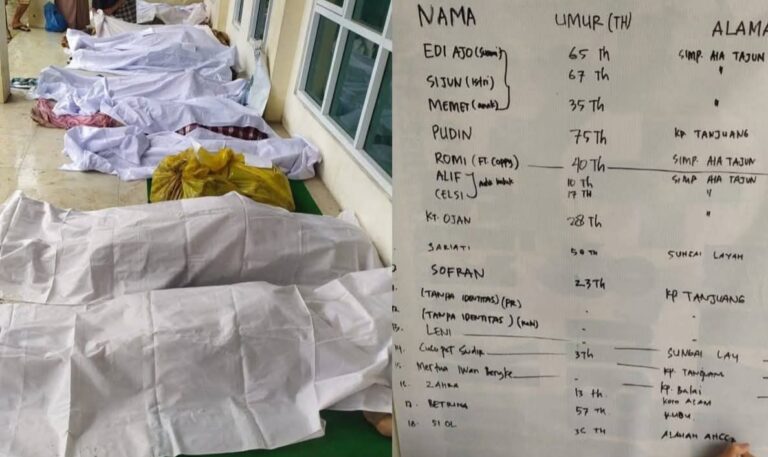 NAMA UMUR (TH) ALAMA
EDI AJO (suami) 65 Th SIMP. AIA TAJUN
SIJUN (istri) 67 Th "
MEMET (anak) 35 Th "
PUDIN 75 Th KP. TANJUANG
ROMI (FT. Coppy) 40 Th SIMP. AIA TAJUN
ALIF 10 Th SIMP AIA TAJUN
CELSI 17 Th "
KT. OJAN 28 Th "
SARIATI 50 Th SUNGAI LAYAH
SOFRAN 23 Th KP TANJUANG
(TANPA IDENTITAS) (PR) - -
12. (TANPA IDENTITAS) - -
13. LENI - SUNGAI LAY
14. Cucu pet Sudir 3 Th KP. TANJUANG
15. Mertua Iwan - KP. Balai
16. ZAHRA 13 Th Koto ALAM
17. RETRINA 57 Th KUBU
18. SI OL 36 TH ALAHAN